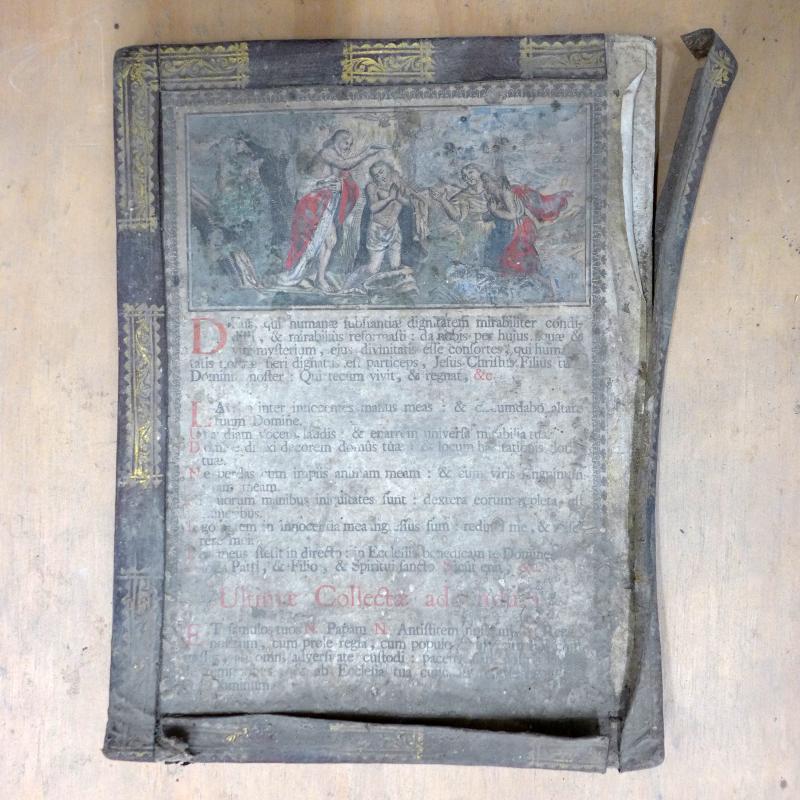 Deus, qui humanæ ſubſtantiæ dignitatem mirabiliter condi-
& mirabilius reformaſti : da nobis per hujus aquæ &
vini myſterium, ejus divinitatis eſſe conſortes, qui huma
fieri dignatus eſt particeps, Jeſus Chriſtus Filius tu
Dominus noſter : Qui tecum vivit, & regnat, &c.
LAvabo inter innocentes manus meas : & circumdabo altare
tuum Domine.
audiam vocem laudis : & enarrem univerſa mirabilia tua.
Domine dilexi decorem domûs tuæ : & locum habitationis
tuæ.
Ne perdas cum impiis animam meam : & cum viris ſanguinum
meam.
quorum manibus iniquitates ſunt : dextera eorum repleta eſt
muneribus.
Ego autem in innocentia mea ingreſſus ſum : redime me, & miſe-
rere mei.
Pes meus ſtetit in directo : in Eccleſiis benedicam te Domine.
Gloria Patri, & Filio, & Spiritui ſancto. Sicut erat, &c.
Ultimæ Collectæ
ET famulos tuos N. Papam N. Antiſtitem
noſtrum, cum prole regia, cum populo
ab omni adverſitate cuſtodi : pacem
ab Eccleſia tua
Dominum